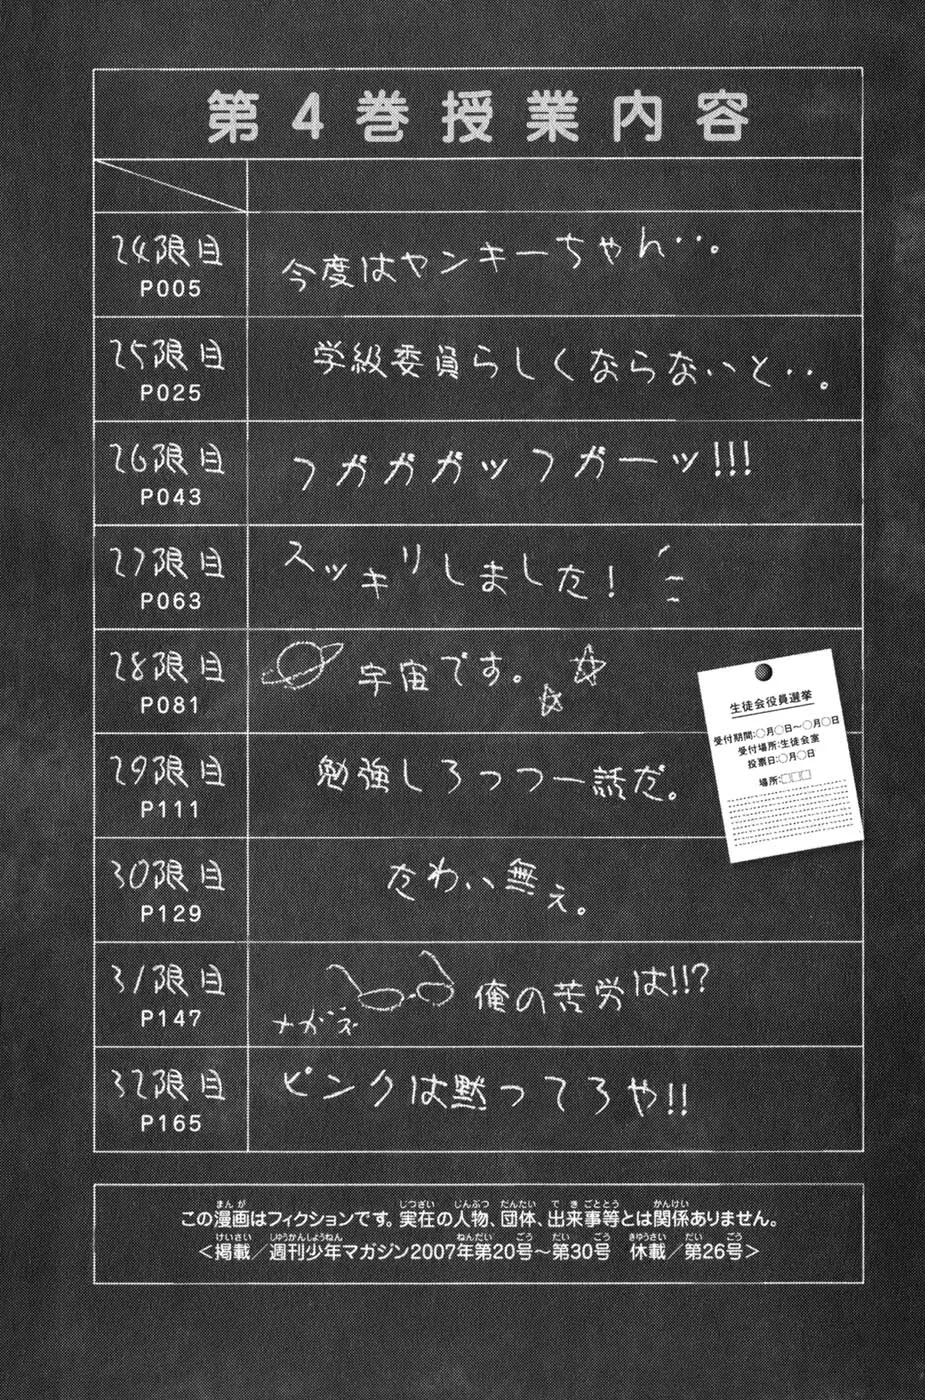 第4巻授業内容
24限目
P005
今度はヤンキーちゃん‥。
25限目
P025
学級委員らしくならないと‥。
26限目
P043
フガガガッフガーッ!!!
27限目
P063
スッキリしました!
28限目
P081
宇宙です。
29限目
P111
勉強しろっつー話だ。
30限目
P129
たわい無ぇ。
31限目
P147
メガネ
俺の苦労は!!?
32限目
P165
ピンクは黙ってろや!!
生徒会役員選挙
受付期間:○月○日〜○月○日
受付場所:生徒会室
投票日:○月○日
場所:□□□
まんが じつざい じんぶつ だんたい できごととう かんけい
この漫画はフィクションです。実在の人物、団体、出来事等とは関係ありません。
けいさい しゅうかんしょうねん ねんだい ごう だい ごう きゅうさい だい ごう
＜掲載／週刊少年マガジン2007年第20号〜第30号 休載／第26号＞